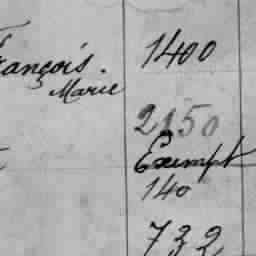 François. 1400
Marie
2150
Exempt
140
732